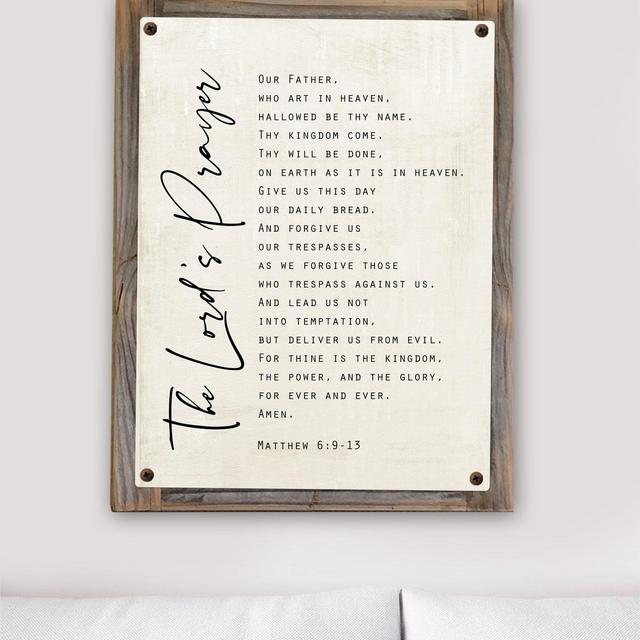 The Lord's Prayer
Our Father,
who art in heaven,
hallowed be thy name.
Thy kingdom come.
Thy will be done,
on earth as it is in heaven.
Give us this day
our daily bread.
And forgive us
our trespasses,
as we forgive those
who trespass against us.
And lead us not
into temptation,
but deliver us from evil.
For thine is the kingdom,
the power, and the glory,
for ever and ever.
Amen.
Matthew 6:9-13